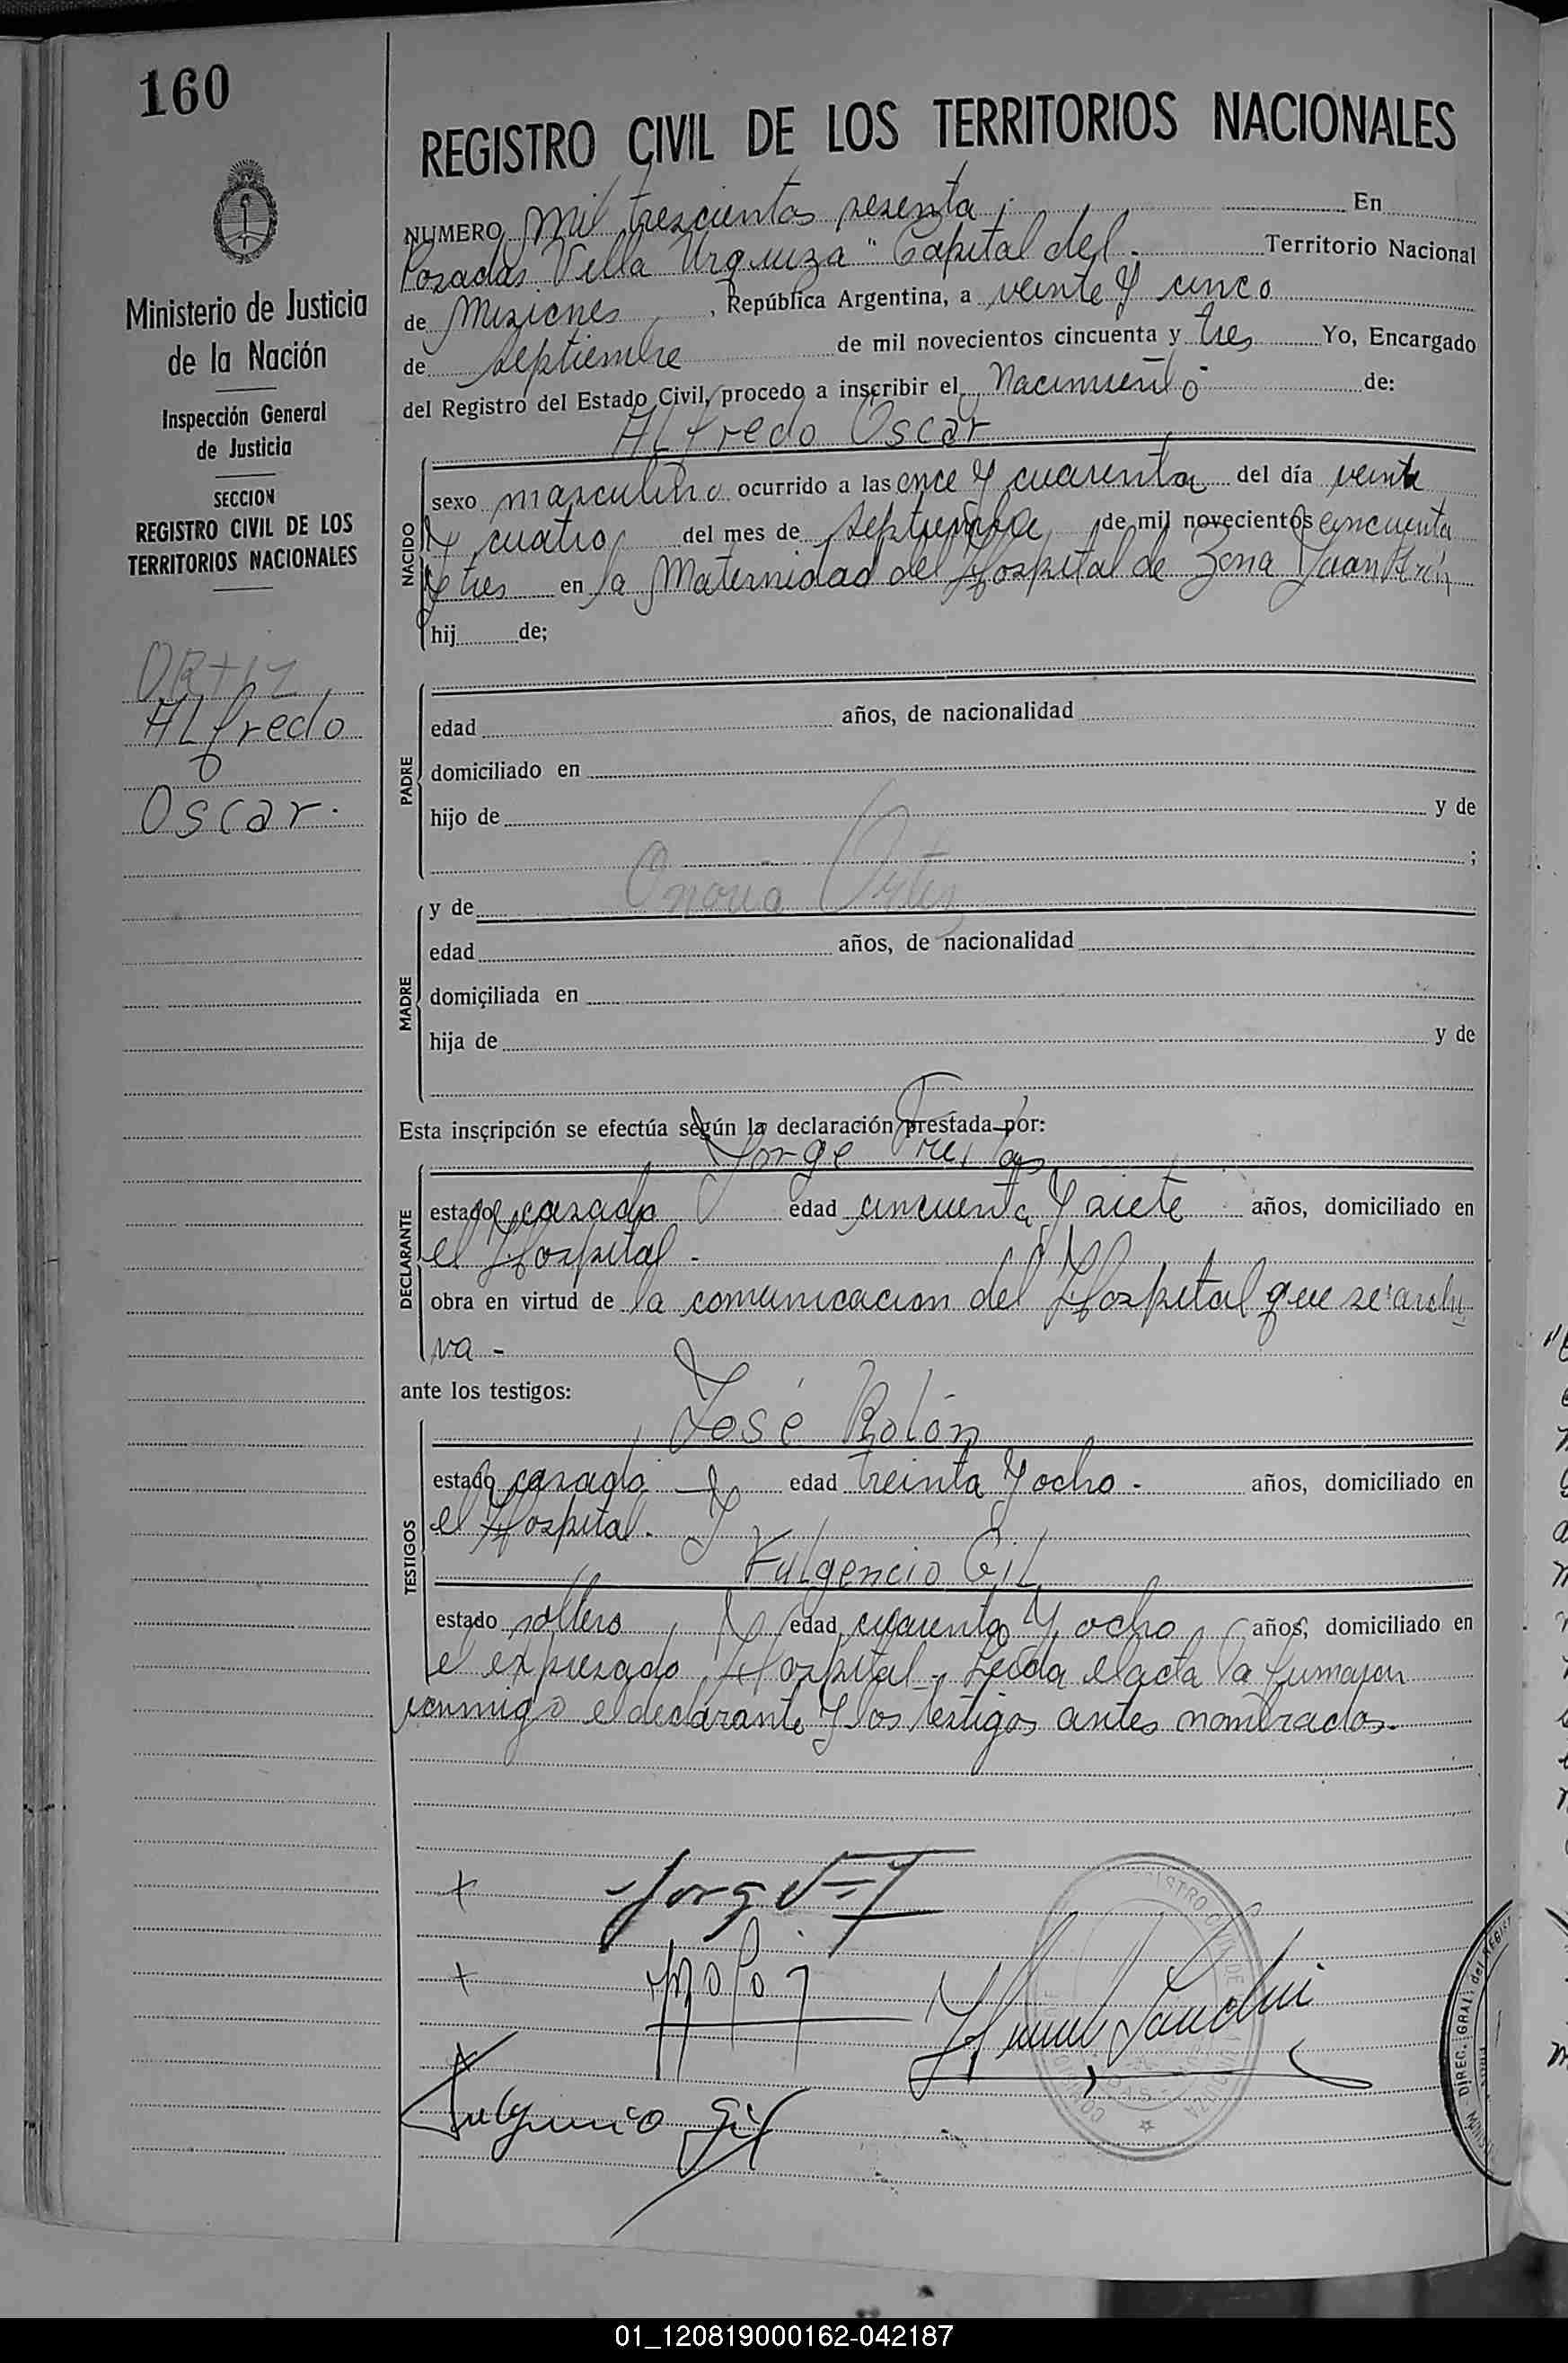 160
REGISTRO CIVIL DE LOS TERRITORIOS NACIONALES
Ministerio de Justicia
de la Nación
Inspección General
de Justicia
SECCION
REGISTRO CIVIL DE LOS
TERRITORIOS NACIONALES
ORtiz
ALfredo
Oscar.
NUMERO Mil trescientos sesenta En
Posadas "Villa Urquiza" Capital del Territorio Nacional
de Misiones, República Argentina, a veinte y cinco
de septiembre de mil novecientos cincuenta y tres Yo, Encargado
del Registro del Estado Civil, procedo a inscribir el Nacimiento de:
ALfredo Oscar
NACIDO
sexo masculino ocurrido a las once y cuarenta del día veinte
y cuatro del mes de septiembre de mil novecientos cincuenta
y tres en la Maternidad del Hospital de Zona Juan Perón
hij de;
PADRE
edad años, de nacionalidad
domiciliado en
hijo de y de
;
MADRE
y de Onoria Ortiz
edad años, de nacionalidad
domiciliada en
hija de y de
Esta inscripción se efectúa según la declaración prestada por:
Jorge Freitas
DECLARANTE
estado casado edad cincuenta y siete años, domiciliado en
el Hospital -
obra en virtud de la comunicacion del Hospital que se archi
va -
ante los testigos:
José Rolón
TESTIGOS
estado casado edad treinta y ocho - años, domiciliado en
el Hospital.
Fulgencio Gil
estado soltero edad cuarenta y ocho años, domiciliado en
el expresado Hospital - Leida el acta la firmaron
conmigo el declarante y los testigos antes nombrados.
Fulgencio Gil
DIREC. GRAL. del REGIST
01_120819000162-042187